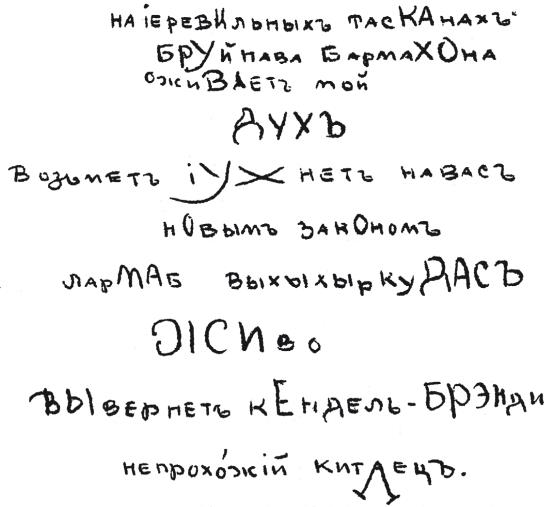 на іеревильныхъ тасКАнахъ
БРУйпава БармаХОна
ОжиВАЕтъ мой
ДУХЪ
Возьметъ іУЖ нетъ навасъ
нОвымъ закОномъ
ларМАБ выхыхыркуДАСЪ
ЖИво
ВЫвернетъ кЕндель-БРЭНди
непрохо́жій китАецъ.